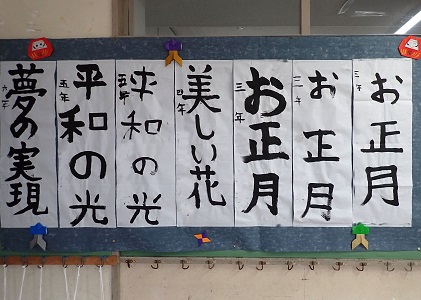 お正月
三年
お正月
三年
お正月
三年
美しい花
四年
平和の光
五年
平和の光
五年
夢の実現
六年